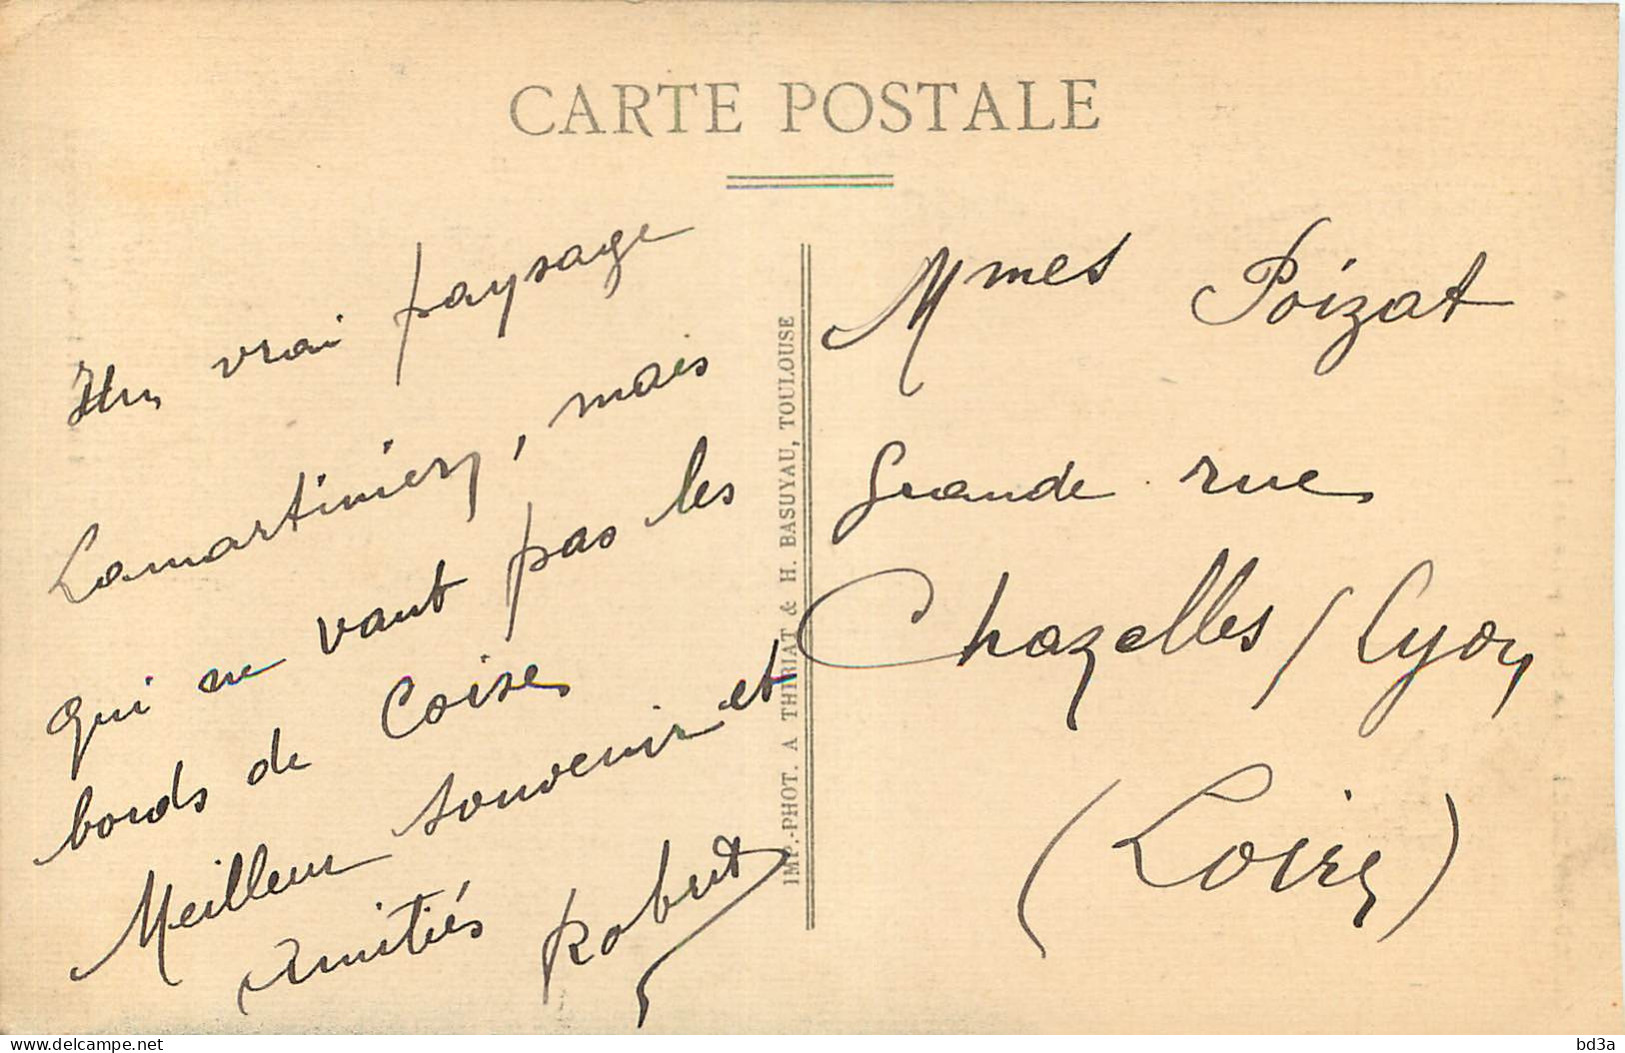 CARTE POSTALE
Un vrai paysage
Lamartinien, mais
qui ne vaut pas les
bords de Coise
Meilleur souvenir et
Amitiés Robert
IMP.-PHOT. A THIRIAT & H. BASUYAU, TOULOUSE
Mmes Poizat
Grande rue
Chazelles / Lyon
(Loire)
www.delcampe.net
bd3a